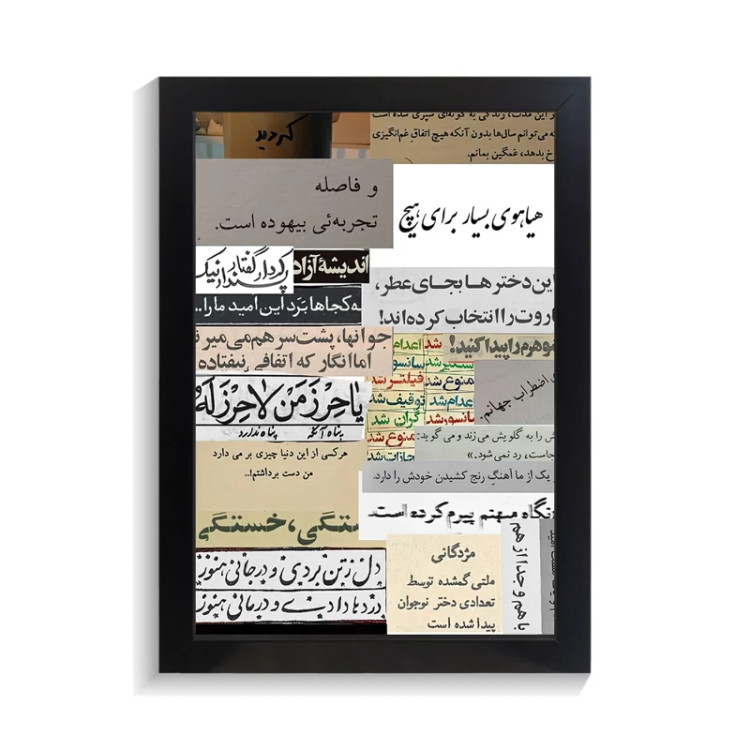 کردید
این مدت، زندگی به گونه‌ای سپری شده است
که می‌توانم سال‌ها بدون آنکه هیچ اتفاق غم‌انگیزی
رخ بدهد، غمگین بمانم.
و فاصله
تجربه‌ئی بیهوده است.
هیاهوی بسیار برای هیچ
اندیشهٔ آزاد
پندار نیک
گفتار
کردار
به کجاها بَرَد این امید ما را..
این دخترها بجای عطر،
باروت را انتخاب کرده‌اند!
جوانها، پشت سر هم می‌میرن
اما انگار که اتفاقی نیفتاده
شوهرم را پیدا کنید!
شد اعدام
سانسور
شد فیلتر
ممنوع شد
اعدام شد توقیف شد
سانسور شد گران شد
ممنوع شد
مجازات شد
اضطراب جهانم.
یا حِرْزَ مَن لا حِرْزَ لَهُ
پناه آنکه پناه ندارد
هرکسی از این دنیا چیزی بر می دارد
من دست برداشتم!..
ش را به گلویش می‌زند و می گوید:
جاست، رد نمی شود.»
هر یک از ما آهنگِ رنج کشیدن خودش را دارد.
نگاه میهنم پیرم کرده است.
خستگی، خستگی
با هم و جدا از هم
دل ز تن بردی و در جانی هنوز
دردها دادی و درمانی هنوز
مژدگانی
ملتی گمشده توسط
تعدادی دختر نوجوان
پیدا شده است